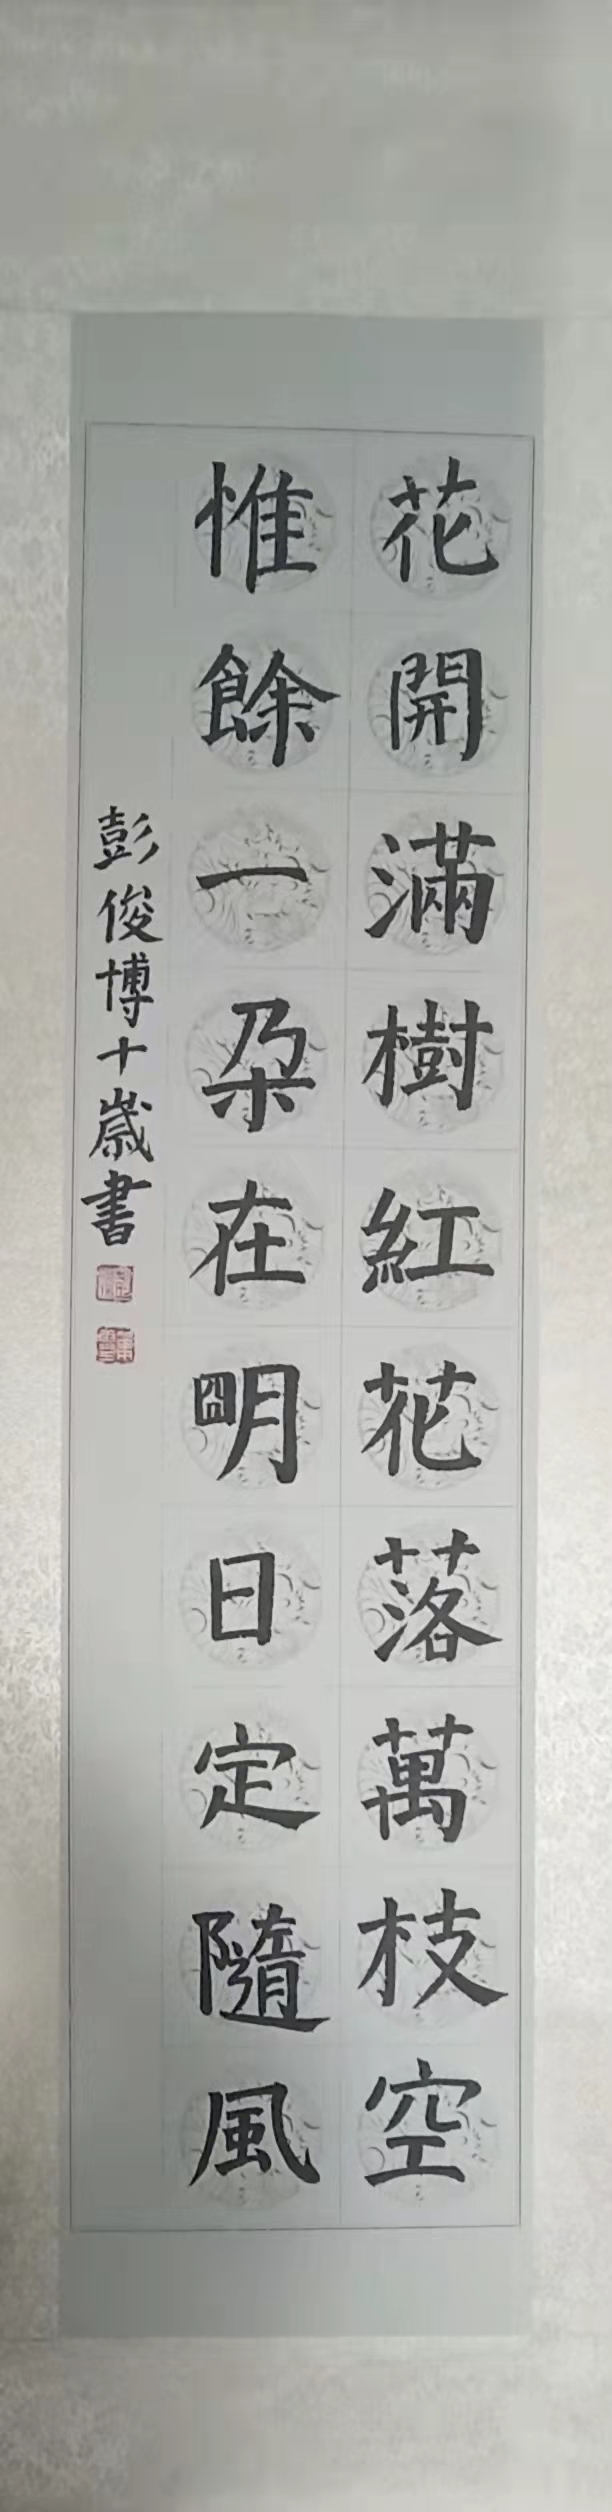 花開滿樹紅花落萬枝空
惟餘一朵在明日定隨風
彭俊博十歲書